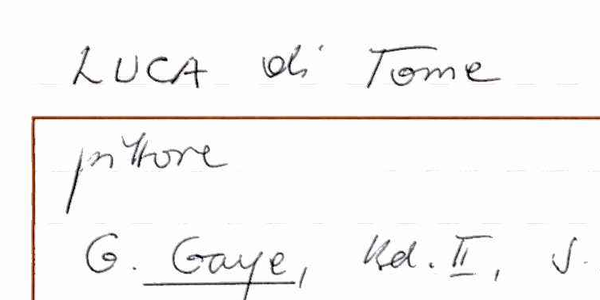 LUCA di Tome
pittore
G. Gaye, Bd. II, S.